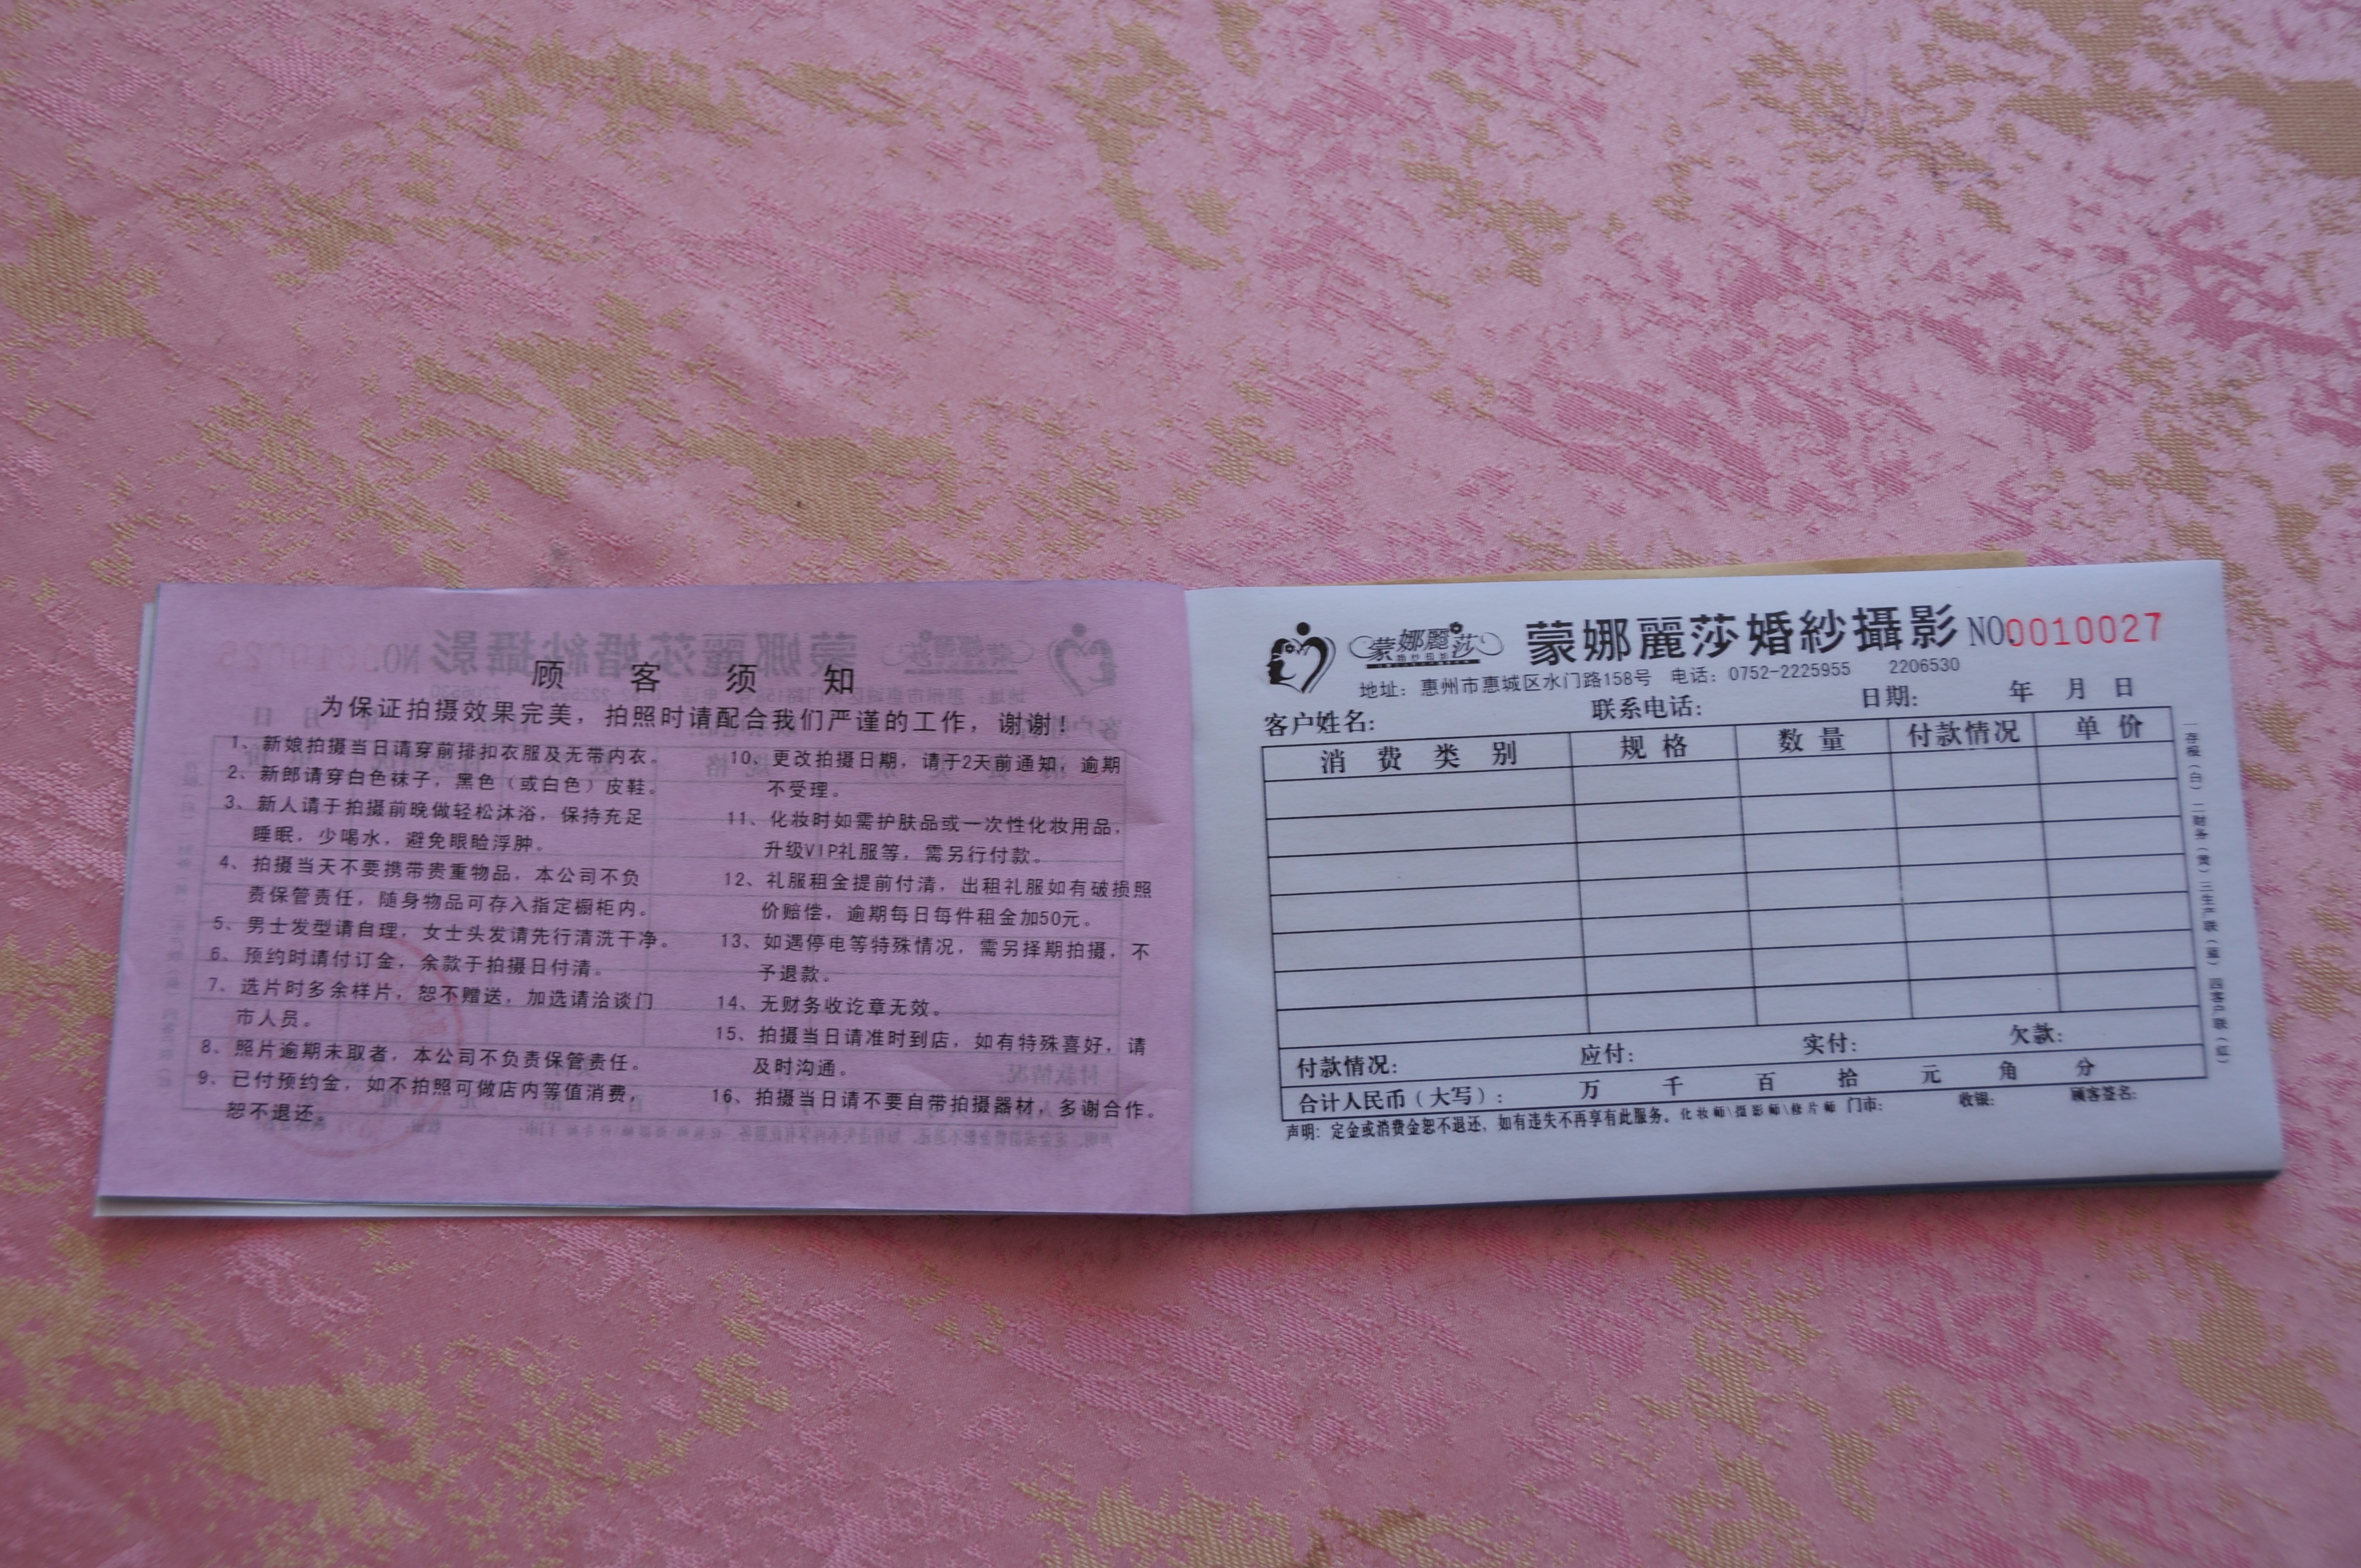 顾客须知
为保证拍摄效果完美，拍照时请配合我们严谨的工作，谢谢！
1、新娘拍摄当日请穿前排扣衣服及无带内衣。
2、新郎请穿白色袜子，黑色（或白色）皮鞋。
3、新人请于拍摄前晚做轻松沐浴，保持充足
睡眠，少喝水，避免眼睑浮肿。
4、拍摄当天不要携带贵重物品，本公司不负
责保管责任，随身物品可存入指定橱柜内。
5、男士发型请自理，女士头发请先行清洗干净。
6、预约时请付订金，余款于拍摄日付清。
7、选片时多余样片，恕不赠送，加选请洽谈门
市人员。
8、照片逾期未取者，本公司不负责保管责任。
9、已付预约金，如不拍照可做店内等值消费，
恕不退还。
10、更改拍摄日期，请于2天前通知，逾期
不受理。
11、化妆时如需护肤品或一次性化妆用品，
升级VIP礼服等，需另行付款。
12、礼服租金提前付清，出租礼服如有破损照
价赔偿，逾期每日每件租金加50元。
13、如遇停电等特殊情况，需另择期拍摄，不
予退款。
14、无财务收讫章无效。
15、拍摄当日请准时到店，如有特殊喜好，请
及时沟通。
16、拍摄当日请不要自带拍摄器材，多谢合作。
蒙娜麗莎
蒙娜麗莎婚紗攝影 NO.0010027
地址：惠州市惠城区水门路158号 电话：0752-2225955 2206530
客户姓名： 联系电话： 日期： 年 月 日
消费类别 规格 数量 付款情况 单价
付款情况： 应付： 实付： 欠款：
合计人民币（大写）： 万 千 百 拾 元 角 分
声明：定金或消费金恕不退还，如有违失不再享有此服务。化妆师\摄影师\修片师 门市： 收银： 顾客签名：
一存根（白） 二财务（黄） 三生产联（蓝） 四客户联（红）